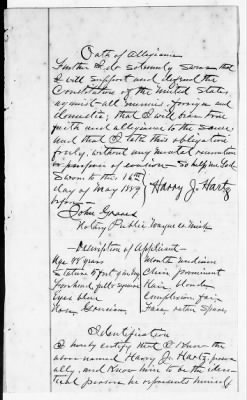 Oath of Allegiance
Further I do solemnly swear that
I will support and defend the
Constitution of the United States
against all enemies, foreign and
domestic; that I will bear true
faith and allegiance to the same;
and that I take this obligation
freely, without any mental reservation
or purpose of evasion - So help me God
Sworn to this 16th
day of May 1889 } Harry J. Hartz
before
John
Notary Public Wayne Co Mich
Description of Applicant
Age 28 years Mouth medium
Stature 5 feet Chin prominent
Forehead full square Hair blonde
Eyes blue Complexion fair
Nose Grecian Face rather spare
Identification
I hereby certify that I know the
above named Harry J. Hartz, person
ally, and know him to be the iden
tical person he represents himself